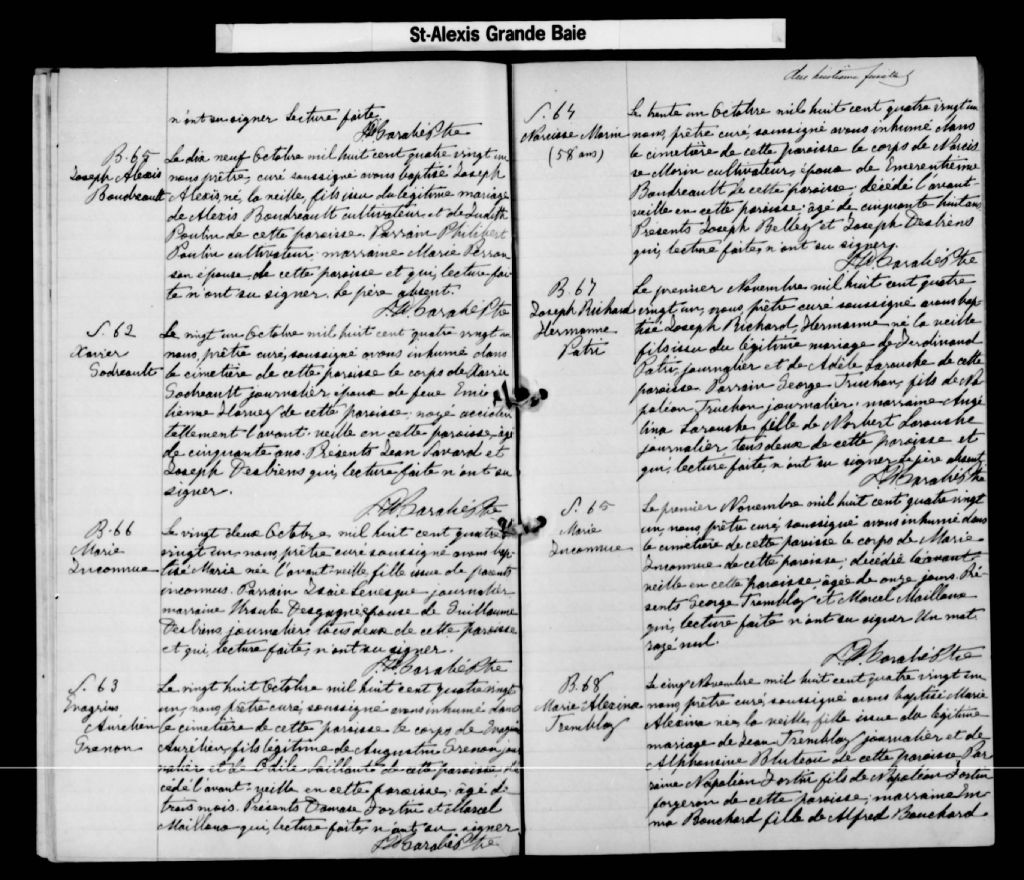 St-Alexis Grande Baie
n'ont su signer lecture faite
B. 65
Joseph Alexis
Boudreault
Le dix neuf Octobre mil huit cent quatre vingt un
nous prêtre, curé soussigné avons baptisé Joseph
Alexis, né, la veille, fils issu du légitime mariage
de Alexis Boudreault cultivateur et de Judith
Poulin de cette paroisse. Parrain Philibert
Poulin cultivateur; marraine Marie Perron
son épouse, de cette paroisse et qui, lecture fai-
te n'ont su signer, le père absent.
S. 62
Xavier
Godreault
Le vingt un Octobre mil huit cent quatre vingt un
nous, prêtre curé, soussigné avons inhumé dans
le cimetière de cette paroisse le corps de Xavier
Godreault journalier époux de feue Emé
lienne Harvey de cette paroisse; noyé acciden
tellement l'avant-veille en cette paroisse, âgé
de cinquante ans. Présents Jean Savard et
Joseph Desbiens qui, lecture faite n'ont su
signer.
B. 66
Marie
Inconnue
Le vingt deux Octobre mil huit cent quatre
vingt un, nous, prêtre curé soussigné avons bap
tisé Marie née l'avant-veille, fille issue de parents
inconnus. Parrain Isaïe Levesque journalier
marraine Ursule Desgagné épouse de Guillaume
Desbiens, journaliers tous deux de cette paroisse
et qui, lecture faite, n'ont su signer.
S. 63
Evagrius
Aurélien
Grenon
Le vingt huit Octobre mil huit cent quatre vingt
un, nous, prêtre curé, soussigné avons inhumé dans
le cimetière de cette paroisse le corps de
Aurélien, fils légitime de Augustin Grenon, jour
nalier et de Odile Vaillant de cette paroisse, dé
cédé l'avant-veille en cette paroisse; âgé de
trois mois. Présents Damase Fortin et Marcel
Mailloux qui, lecture faite, n'ont su signer
dix huitième feuillet
S. 64
Narcisse Morin
(58 ans)
Le trente un Octobre mil huit cent quatre vingt un
nous, prêtre curé, soussigné avons inhumé dans
le cimetière de cette paroisse le corps de Narcis
se Morin cultivateur, époux de Emérentienne
Boudreault de cette paroisse, décédé l'avant-
veille en cette paroisse; âgé de cinquante huit ans
Présents Joseph Belley et Joseph Desbiens
qui, lecture faite, n'ont su signer.
B. 67
Joseph Richard
Hermanne
Patri
Le premier Novembre mil huit cent quatre
vingt un, nous, prêtre curé soussigné avons bap-
tisé Joseph Richard, Hermanne né la veille
fils issu du légitime mariage de Ferdinand
Patri, journalier et de Adèle Larouche de cette
paroisse. Parrain George Truchon, fils de Na
poléon Truchon journalier; marraine Angé
lina Larouche fille de Norbert Larouche
journalier, tous deux de cette paroisse et
qui, lecture faite, n'ont su signer le père absent
S. 65
Marie
Inconnue
Le premier Novembre mil huit cent quatre vingt
un, nous, prêtre curé, soussigné avons inhumé dans
le cimetière de cette paroisse le corps de Marie
Inconnue de cette paroisse, décédée l'avant
veille en cette paroisse âgée de onze jours. Pré-
sents George Tremblay et Marcel Mailloux
qui, lecture faite n'ont su signer Un mot
rayé nul.
B. 68
Marie Alexina
Tremblay
Le cinq Novembre mil huit cent quatre vingt un
nous, prêtre curé, soussigné avons baptisé Marie
Alexina née, la veille, fille issue du légitime
mariage de Jean Tremblay journalier et de
Alphonsine Bluteau de cette paroisse. Par
rain Napoléon Fortin fils de Napoléon Fortin
forgeron de cette paroisse; marraine Em
ma Bouchard fille de Alfred Bouchard